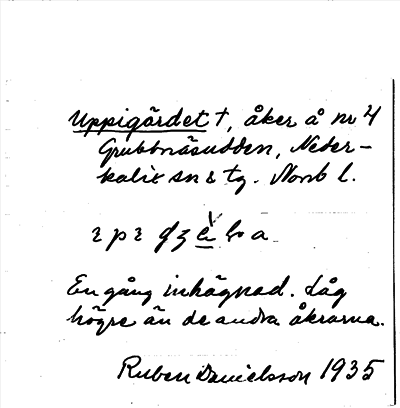 Uppigärdet †, åker å nr 4
Grubbnäsudden, Neder-
kalix sn & tg. Norrb l.
En gång inhägnad. Låg
högre än de andra åkrarna.
Ruben Danielsson 1935